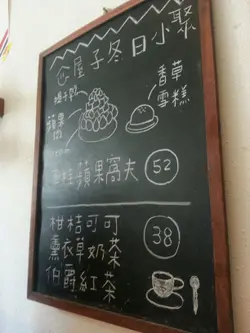 屋子冬日小聚
香草
雪糕
蘋果
蘋果窩夫 52
柑桔可可
薰衣草奶茶 38
伯爵紅茶